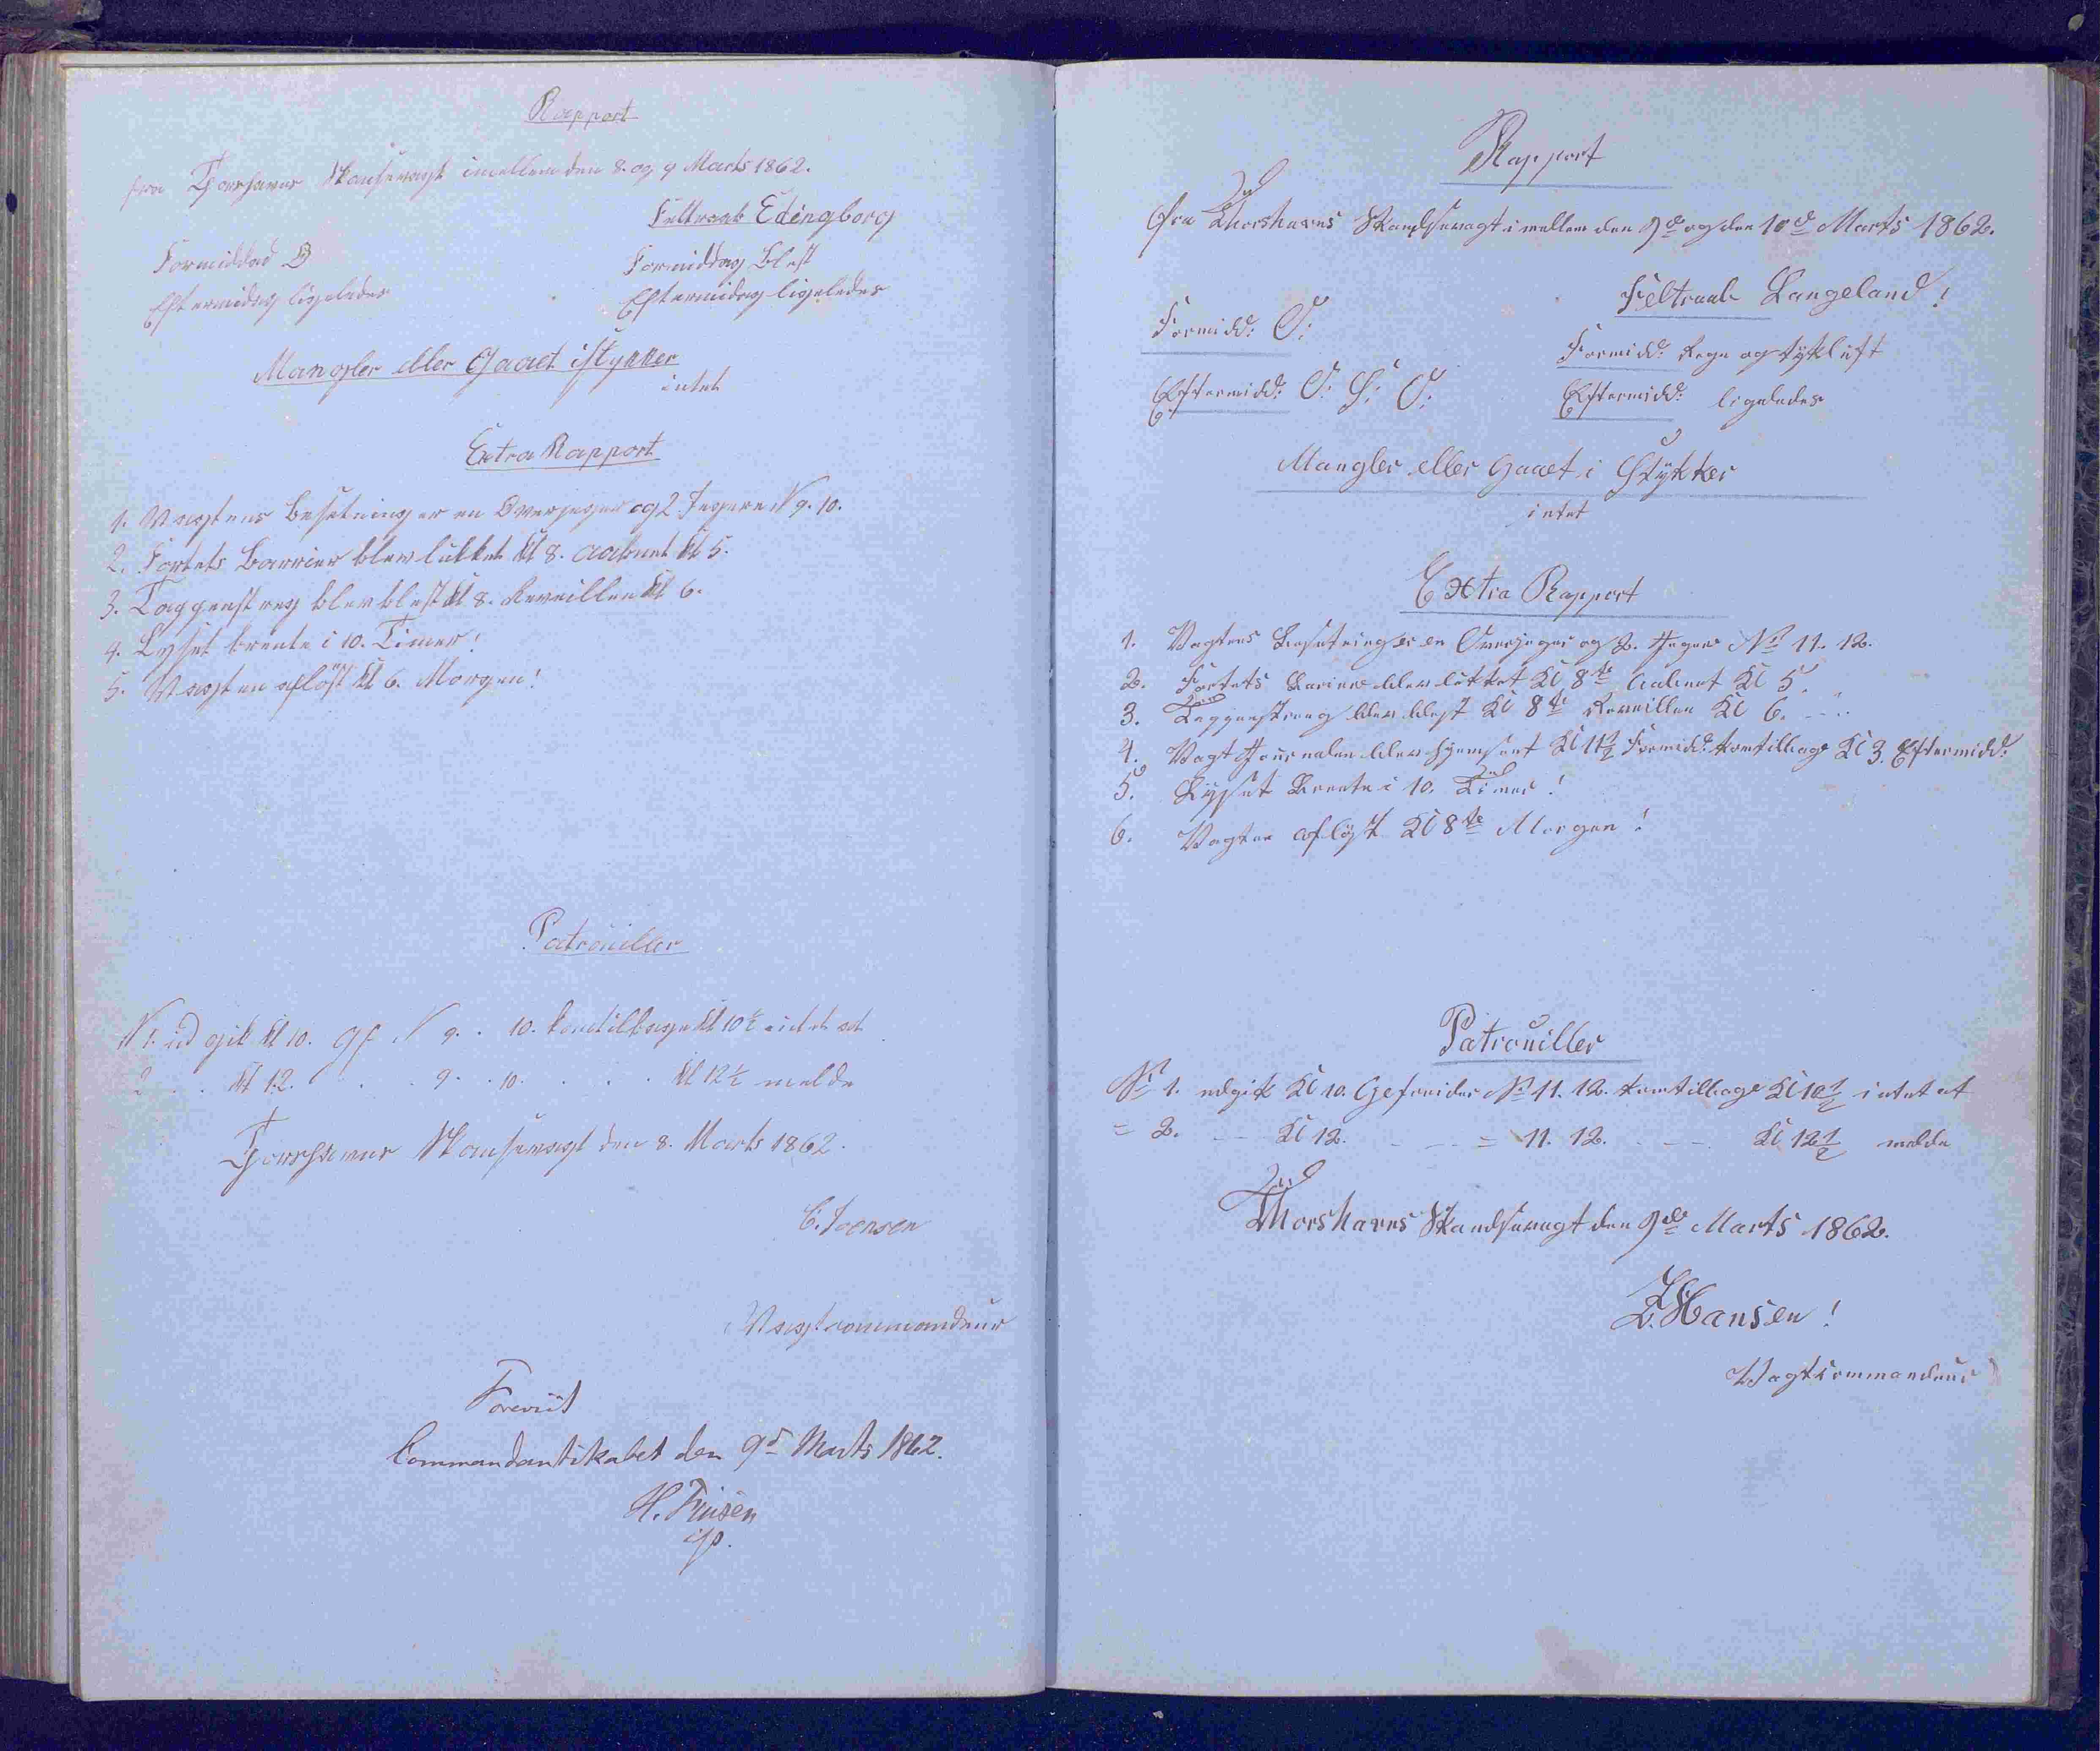 Rapport
fra Thorshavns Skansevagt imellem den 8. og 9 Marts 1862.
Feltraab Edingborg
Formiddad
Formiddag blest
Eftermidag ligeledes
Eftermidag ligeledes
Mangler eller Gaaet istykker
intet
Extra Rapport
1. Vagtens besetning er en Overjeger og 2 Jegere N 9. 10.
2. Fortets Barrier blev lukket Kl 8. aabnet Kl 5.
3. Tappenstreg blev blest Kl 8. Reveillen Kl 6.
4. Lyset brente i 10. Timer!
5. Vagten aflöst Kl 6. Morgen!
Patrouiller
N 1. ud gik Kl 10. Gf N 9. . 10. komtilbage Kl 10½ intet at
2 . . Kl 12. . . . 9. . 10. . . . Kl 12½ melde
Thorshavns Skansevagt den 8. Marts 1862.
C. Joensen
Vagtcommandeur
Foreviist
Commandantskabet den 9d Marts 1862.
H. Finsen
Rapport
Fra Thorshavns Skandsevagt imellem den 9de og den 10de Marts 1862.
Feltraab Langeland!
Formidd: O:
Formidd: Regn og tykluft
Eftermidd: O: S: O:
Eftermidd: ligeledes
Mangler eller Gaaet i Stykker
intet
Extra Rapport
1. Vagtens Besetning er en Overjeger og 2. Jegere No 11. 12.
2. Fortets Bariere blev lukket Kl 8te Aabnet Kl 5.
3. Tappenstreg blev blest Kl 8te Reveillen Kl 6.
4. Vagt Journalen blev hjemsent Kl 11½ Formidd: komtilbage Kl 3. Eftermidd:
5. Lyset Brente i 10. Timer!
6. Vagten aflöst Kl 8te Morgen!
Patrouiller
No 1. udgik Kl 10. Gefreider No 11. 12. komtilbage Kl 10½ intet at
= 2. - - Kl 12. - - - = 11. 12. - - - Kl 12½ melde
Thorshavns Skandsevagt den 9de Marts 1862.
Z. Hansen!
Vagtcommandeur